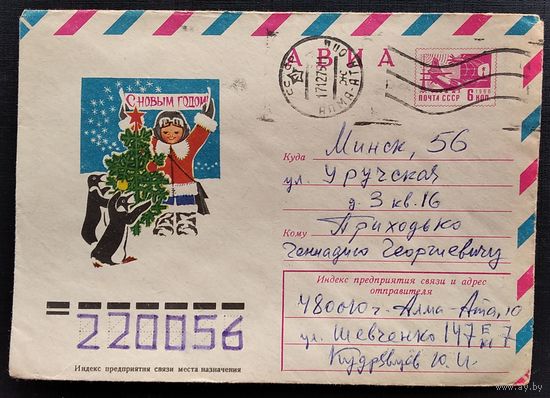 АВИА
С НОВЫМ ГОДОМ!
СССР
АЛМА-АТА
ПОЧТА СССР
6 коп
Куда
Минск, 56
ул. Уручская
д 3 кв. 16
Кому
Приходько
Геннадию Георгиевичу
Индекс предприятия связи и адрес
отправителя
480010 г. Алма-Ата, 10
ул. Шевченко 147
Кудрявцев Ю. И.
220056
Индекс предприятия связи места назначения
www.ay.by